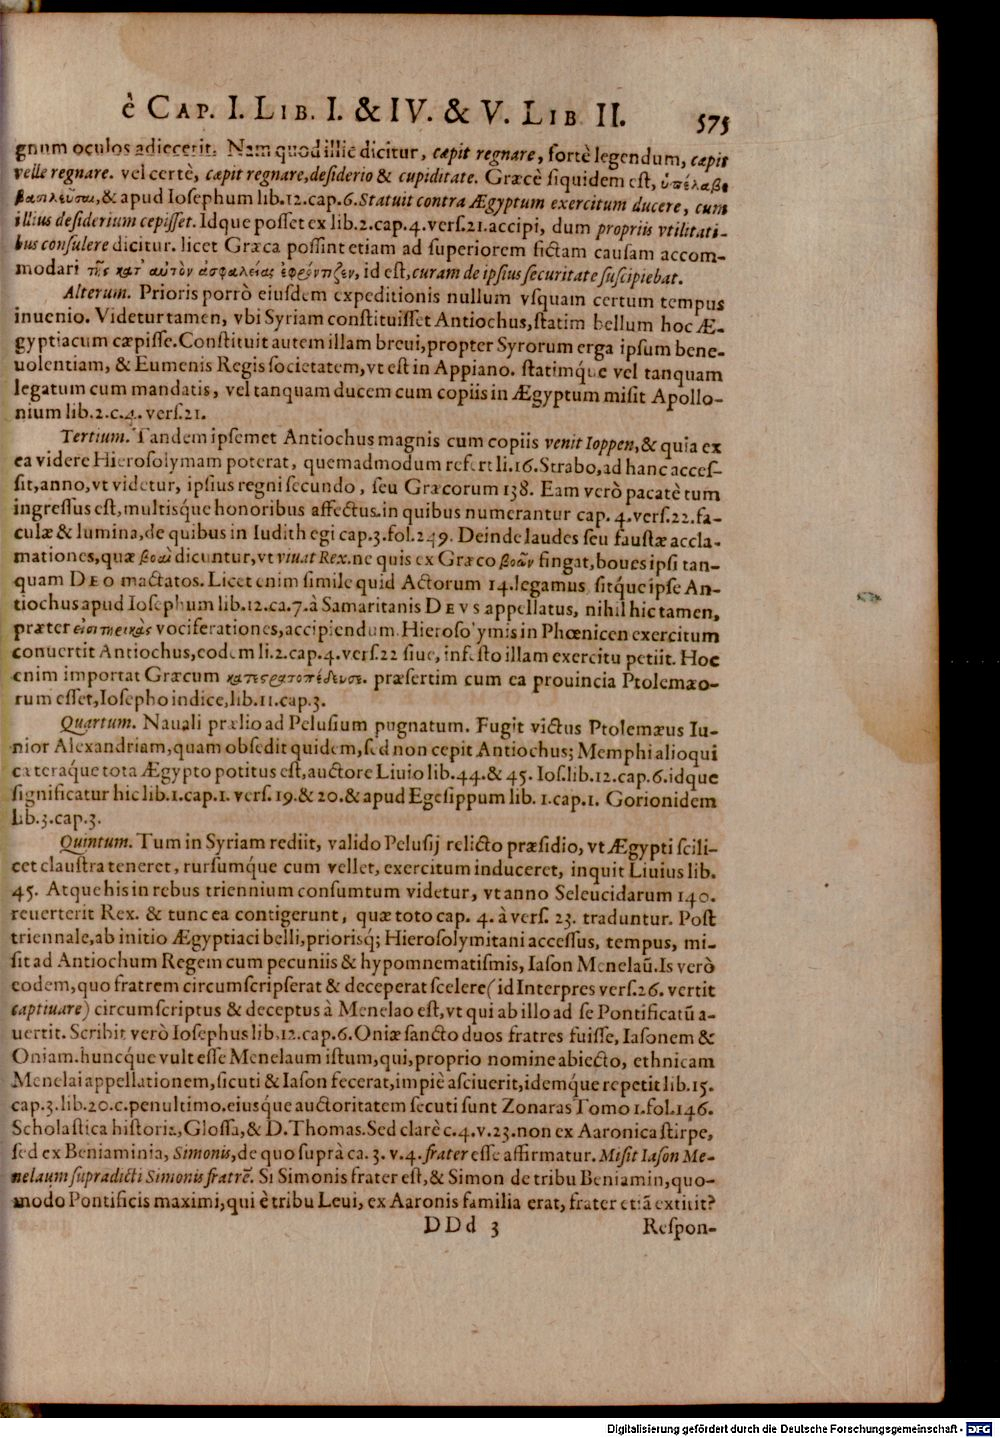 è CAP. I. LIB. I. & IV. & V. LIB II. 575
gnum oculos adiecerit. Nam quod illîc dicitur, cæpit regnare, fortè legendum, cæpit
velle regnare. vel certè, cæpit regnare, desiderio & cupiditate. Græcè siquidem est, ὑπέλαβε
βασιλεῦσαι, & apud Iosephum lib.12.cap.6. Statuit contra Ægyptum exercitum ducere, cum
illius desiderium cepisset. Idque posset ex lib.2.cap.4.vers.21.accipi, dum propriis vtilitati-
bus consulere dicitur. licet Græca possint etiam ad superiorem fictam causam accom-
modari τῆς κατ' αὐτὸν ἀσφαλείας ἐφρόντιζεν, id est, curam de ipsius securitate suscipiebat.
Alterum. Prioris porrò eiusdem expeditionis nullum vsquam certum tempus
inuenio. Videtur tamen, vbi Syriam constituisset Antiochus, statim bellum hoc Æ-
gyptiacum cæpisse. Constituit autem illam breui, propter Syrorum erga ipsum bene-
uolentiam, & Eumenis Regis societatem, vt est in Appiano. statimque vel tanquam
legatum cum mandatis, vel tanquam ducem cum copiis in Ægyptum misit Apollo-
nium lib.2.c.4. vers.21.
Tertium. Tandem ipsemet Antiochus magnis cum copiis venit Ioppen, & quia ex
ea videre Hierosolymam poterat, quemadmodum refert li.16. Strabo, ad hanc acces-
sit, anno, vt videtur, ipsius regni secundo, seu Græcorum 138. Eam verò pacatè tum
ingressus est, multisque honoribus affectus. in quibus numerantur cap. 4. vers.22. fa-
culæ & lumina, de quibus in Iudith egi cap.3.fol.249. Deinde laudes seu faustæ accla-
mationes, quæ βοαὶ dicuntur, vt viuat Rex. ne quis ex Græco βοῶν fingat, boues ipsi tan-
quam DEO mactatos. Licet enim simile quid Actorum 14. legamus, sitque ipse An-
tiochus apud Iosephum lib.12.ca.7. à Samaritanis DEVS appellatus, nihil hic tamen,
præter vociferationes, accipiendum. Hierosolymis in Phœnicen exercitum
conuertit Antiochus, eodem li.2.cap.4.vers.22 siue, infesto illam exercitu petiit. Hoc
enim importat Græcum κατεστρατοπέδευσε. præsertim cum ea prouincia Ptolemæo-
rum esset, Iosepho indice, lib.11.cap.3.
Quartum. Nauali prælio ad Pelusium pugnatum. Fugit victus Ptolemæus Iu-
nior Alexandriam, quam obsedit quidem, sed non cepit Antiochus; Memphi alioqui
cæteraque tota Ægypto potitus est, auctore Liuio lib.44.& 45. Ios.lib.12.cap.6. idque
significatur hic lib.1.cap.1. vers. 19.& 20.& apud Egesippum lib. 1.cap.1. Gorionidem
lib.3.cap.3.
Quintum. Tum in Syriam rediit, valido Pelusij relicto præsidio, vt Ægypti scili-
cet claustra teneret, rursumque cum vellet, exercitum induceret, inquit Liuius lib.
45. Atque his in rebus triennium consumtum videtur, vt anno Seleucidarum 140.
reuerterit Rex. & tunc ea contigerunt, quæ toto cap. 4. à vers. 23. traduntur. Post
triennale, ab initio Ægyptiaci belli, priorisq; Hierosolymitani accessus, tempus, mi-
sit ad Antiochum Regem cum pecuniis & hypomnematismis, Iason Menelaū. Is verò
eodem, quo fratrem circumscripserat & deceperat scelere (id Interpres vers.26. vertit
captiuare) circumscriptus & deceptus à Menelao est, vt qui ab illo ad se Pontificatū a-
uertit. Scribit verò Iosephus lib.12.cap.6. Oniæ sancto duos fratres fuisse, Iasonem &
Oniam. huncque vult esse Menelaum istum, qui, proprio nomine abiecto, ethnicam
Menelai appellationem, sicuti & Iason fecerat, impiè asciuerit, idemque repetit lib.15.
cap.3.lib.20.c.penultimo. eiusque auctoritatem secuti sunt Zonaras Tomo 1.fol.146.
Scholastica historia, Glossa, & D. Thomas. Sed clarè c.4.v.23. non ex Aaronica stirpe,
sed ex Beniaminia, Simonis, de quo suprà ca. 3. v.4. frater esse affirmatur. Misit Iason Me-
nelaum supradicti Simonis fratrē. Si Simonis frater est, & Simon de tribu Beniamin, quo-
modo Pontificis maximi, qui è tribu Leui, ex Aaronis familia erat, frater etiā extitit?
DDd 3 Respon-
Digitalisierung gefördert durch die Deutsche Forschungsgemeinschaft - DFG